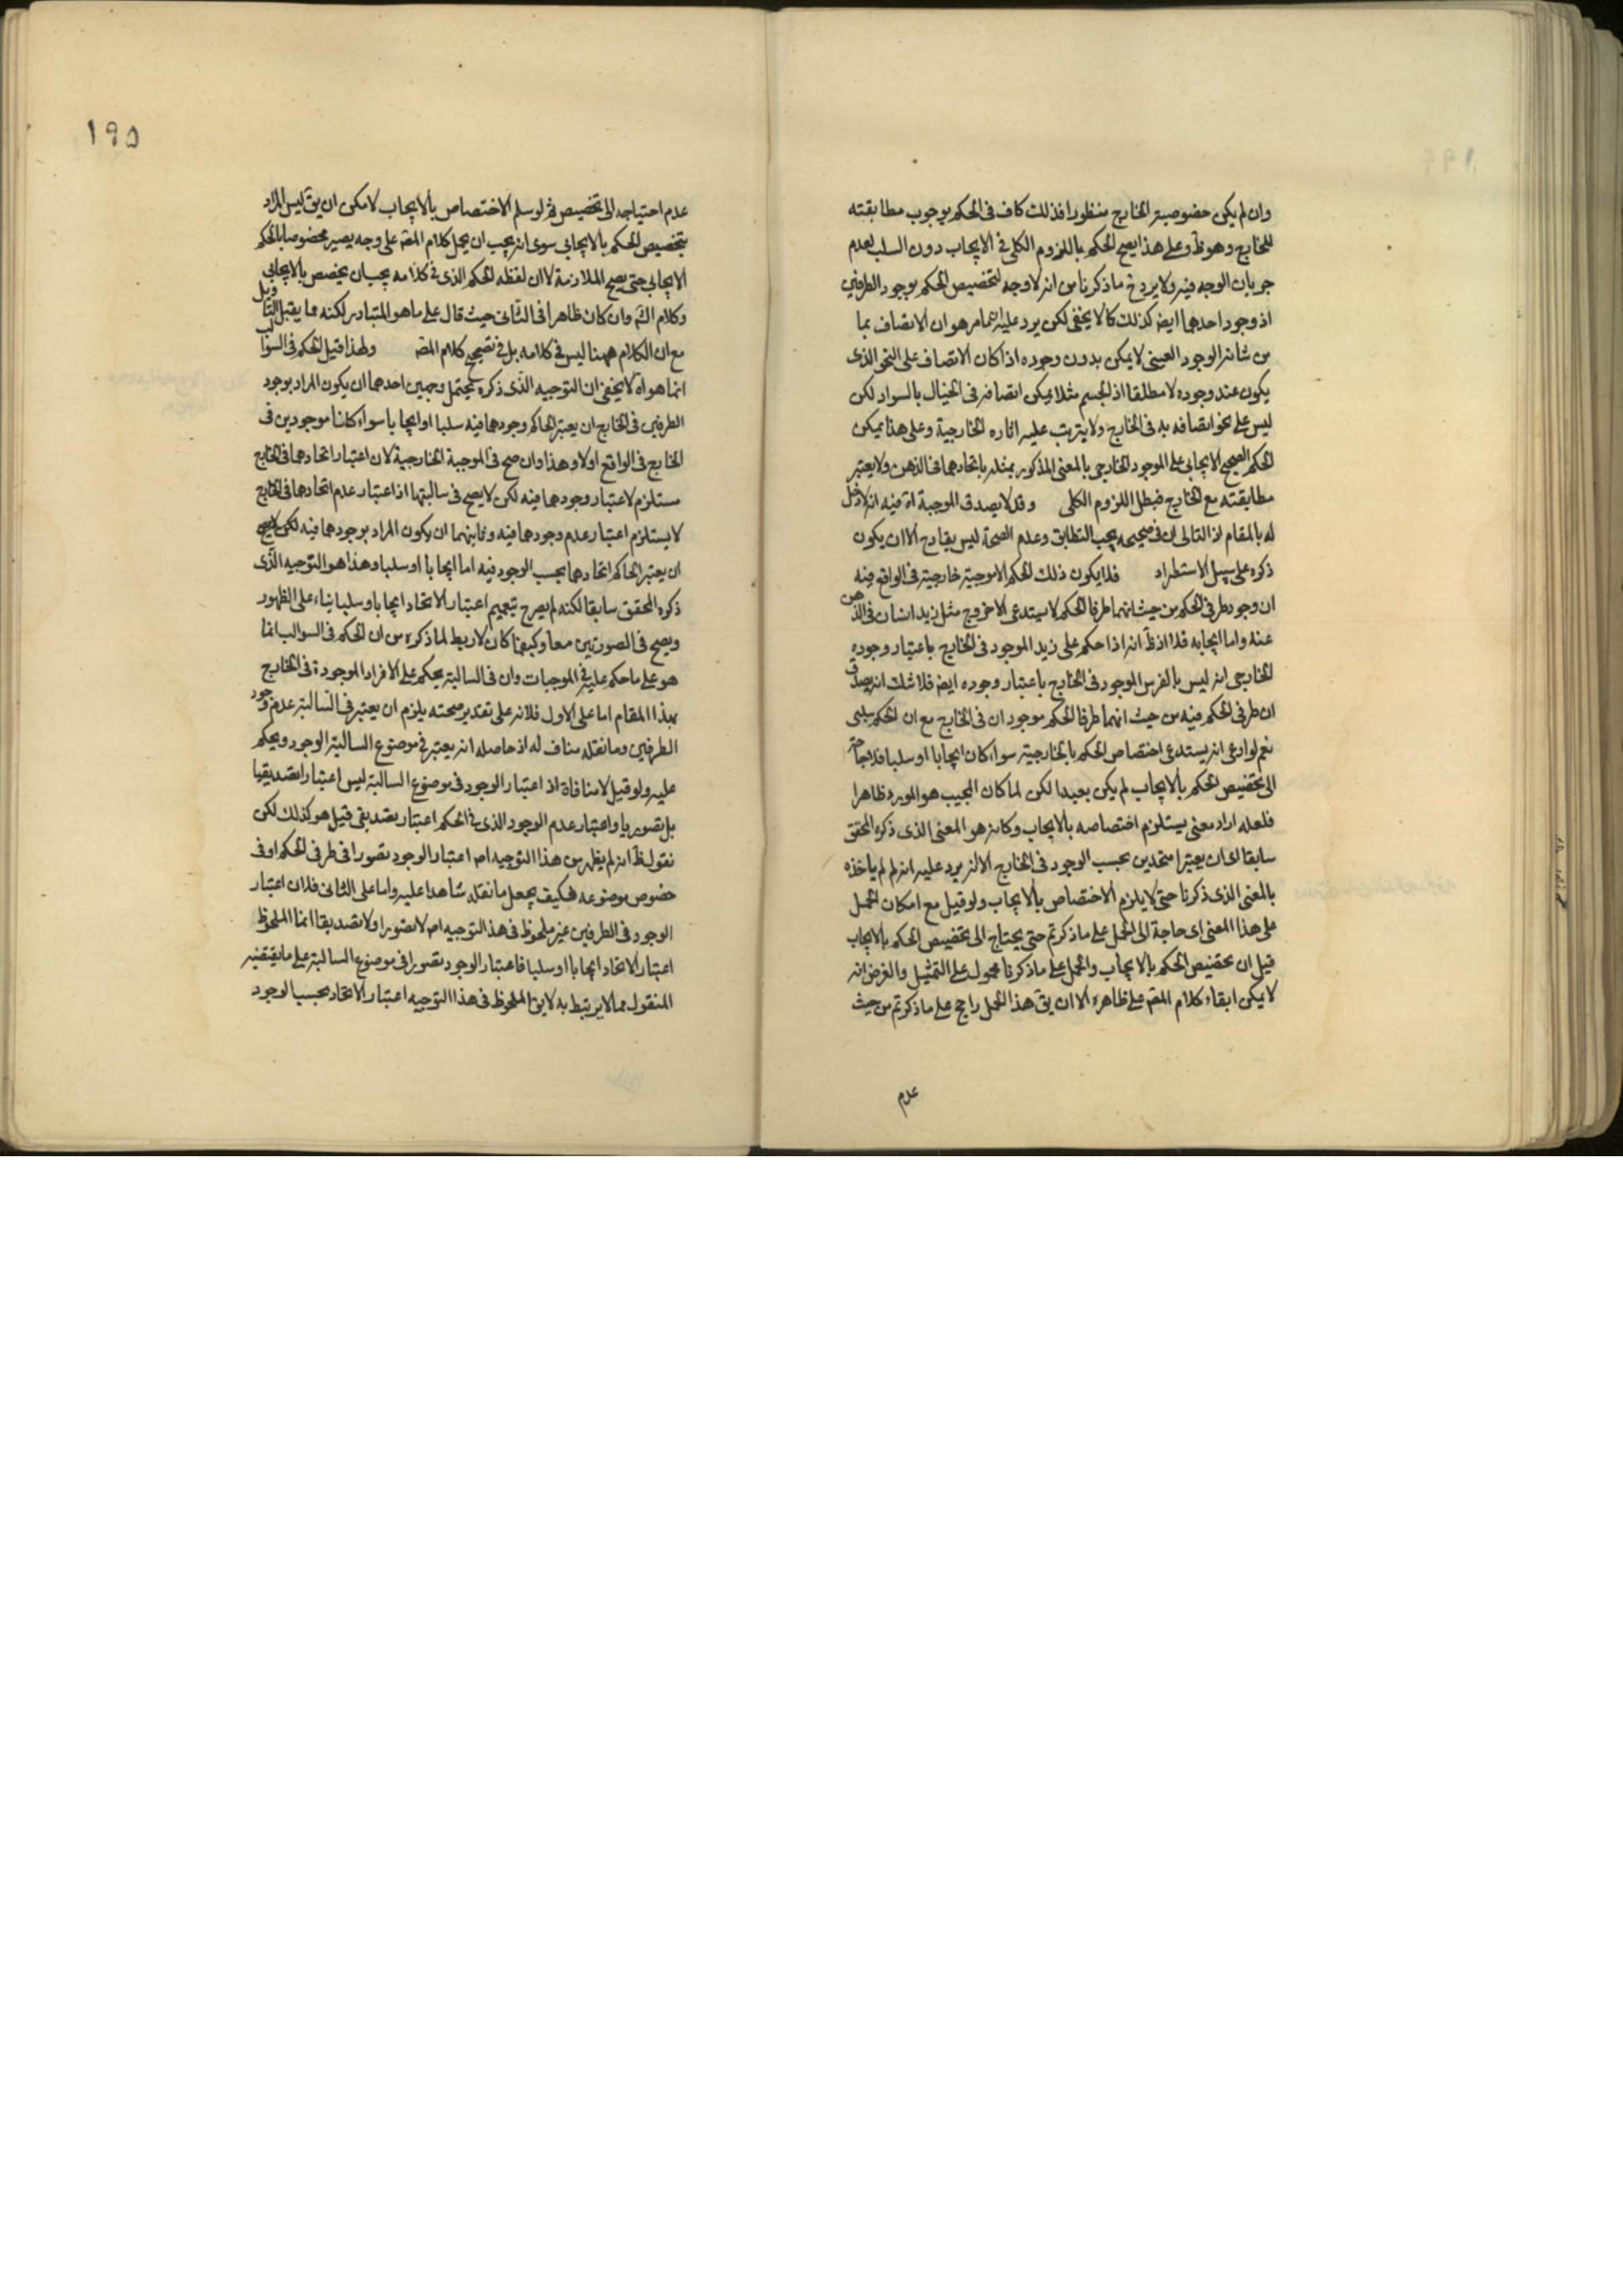 وان لم يكن خصوصية الخارج منظورا فذلك كاف في الحكم بوجوب مطابقته
للخارج وهو ظ وعلى هذا يصح الحكم باللزوم الكلى في الايجاب دون السلب لعدم
جريان الوجه فيه ولا يرد ح ما ذكرنا من انه لا وجه لتخصيص الحكم بوجود الطرفين
اذ وجود احدهما ايضا كذلك كما لا يخفى لكن يرد عليه ما مر هو ان الاتصاف بما
من شانه الوجود العينى لا يمكن بدون وجوده اذا كان الاتصاف على النحو الذى
يكون عند وجوده لا مطلقا اذ الجسم مثلا يمكن اتصافه في الخيال بالسواد لكن
ليس على نحو اتصافه به في الخارج ولا يترتب عليه اثاره الخارجية وعلى هذا يمكن
الحكم الصحيح الايجابى على الموجود الخارجى بالمعنى المذكور بمثله باتحادهما في الذهن ولا يعتبر
مطابقته مع الخارج فبطل اللزوم الكلى وقد لا يصدق الموجبة اه فيه انه لا دخل
له بالمقام اذ التالى ان في صحيحه يجب التطابق وعدم الصحة ليس بقادح الا ان يكون
ذكره على سبيل الاستطراد فلا يكون ذلك الحكم الا موجبة خارجية في الواقع فيه
ان وجود طرفى الحكم من حيث انهما طرفا الحكم لا يستدعى الا خروج مثل زيد انسان في الذهن
عنه واما ايجابه فلا اذ ظ انه اذا حكم على زيد الموجود في الخارج باعتبار وجوده
الخارجى انه ليس بالفرس الموجود في الخارج باعتبار وجوده ايضا فلا شك انه يصدق
ان طرفى الحكم فيه من حيث انهما طرفا الحكم موجودان في الخارج مع ان الحكم سلبى
نعم لو ادعى انه يستدعى اختصاص الحكم بالخارجية سواء كان ايجابا او سلبا فلا حاجة
الى تخصيص الحكم بالايجاب لم يكن بعيدا لكن لما كان المجيب هو المورد ظاهرا
فلعله اراد معنى يستلزم اختصاصه بالايجاب وكانه هو المعنى الذى ذكره المحقق
سابقا اى ان يعتبرا متحدين بحسب الوجود في الخارج الا انه يرد عليه انه لم لم ياخذه
بالمعنى الذى ذكرنا حتى لا يلزم الاختصاص بالايجاب ولو قيل مع امكان الحمل
على هذا المعنى اى حاجة الى الحمل على ما ذكرتم حتى يحتاج الى تخصيص الحكم بالايجاب
قيل ان تخصيص الحكم بالايجاب والحمل على ما ذكرنا محمول على التمثيل والغرض انه
لا يمكن ابقاء كلام المصه على ظاهره الا ان يق هذا الحمل راجح على ما ذكرتم من حيث
عدم
١٩٥
عدم احتياجه الى تخصيص ثم لو سلم الاختصاص بالايجاب لامكن ان يق ليس المراد
بتخصيص الحكم بالايجابى سوى انه يجب ان يحمل كلام المصه على وجه يصير مخصوصا بالحكم
الايجابى حتى يصح الملازمة لا ان لفظه الحكم الذى في كلامه يجب ان يخصص بالايجابى
وكلام الشه وان كان ظاهرا في الثانى حيث قال على ما هو المتبادر لكنه مما يقبل التاويل
مع ان الكلام ههنا ليس في كلامه بل في تصحيح كلام المصه ولهذا قيل الحكم في السوالب
انما هو اه لا يخفى ان التوجيه الذى ذكره يحتمل وجهين احدهما ان يكون المراد بوجود
الطرفين في الخارج ان يعتبر الحاكم وجودهما فيه سلبا او ايجابا سواء كانا موجودين في
الخارج في الواقع او لا وهذا وان صح في الموجبة الخارجية لان اعتبار اتحادهما في الخارج
مستلزم لاعتبار وجودهما فيه لكن لا يصح في سالبتها اذ اعتبار عدم اتحادهما في الخارج
لا يستلزم اعتبار عدم وجودهما فيه وثانيهما ان يكون المراد بوجودهما فيه
ان يعتبر الحاكم اتحادهما بحسب الوجود فيه اما ايجابا او سلبا وهذا هو التوجيه الذى
ذكره المحقق سابقا لكنه لم يصرح بتعميم اعتبار الاتحاد ايجابا وسلبا بناء على الظهور
ويصح في الصورتين معا وكيفما كان لا ربط لما ذكره من ان الحكم في السوالب انما
هو على ما حكم عليه في الموجبات وان في السالبة يحكم على الافراد الموجودة في الخارج
بهذا المقام اما على الاول فلانه على تقدير صحته يلزم ان يعتبر في السالبة عدم وجود
الطرفين وما نقله مناف له اذ حاصله انه يعتبر في موضوع السالبة الوجود ويحكم
عليه ولو قيل لا منافاة اذ اعتبار الوجود في موضوع السالبة ليس اعتبارا تصديقيا
بل تصوريا واعتبار عدم الوجود الذى في الحكم اعتبار تصديقى قيل هو كذلك لكن
نقول ظ انه لم يظهر من هذا التوجيه اصه اعتبار الوجود تصورا في طرفى الحكم او في
خصوص موضوعه فكيف يجعل ما نقله شاهدا عليه واما على الثانى فلان اعتبار
الوجود في الطرفين غير ملحوظ في هذا التوجيه اصه لا تصورا ولا تصديقا انما الملحوظ
اعتبار الاتحاد ايجابا او سلبا فاعتبار الوجود تصورا في موضوع السالبة على ما يقتضيه
المنقول مما لا يرتبط به لا يق الملحوظ في هذا التوجيه اعتبار الاتحاد بحسب الوجود